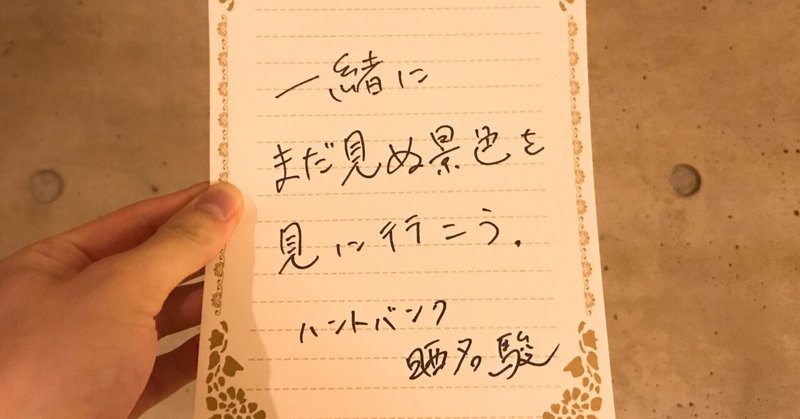 一緒に
まだ見ぬ景色を
見に行こう.
ハントバンク
晒名 駿